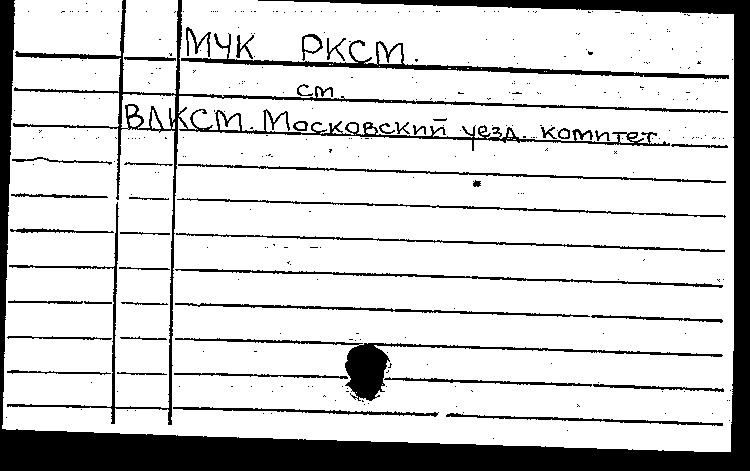 МУК РКСМ.
см.
ВЛКСМ. Московский уезд. комитет.